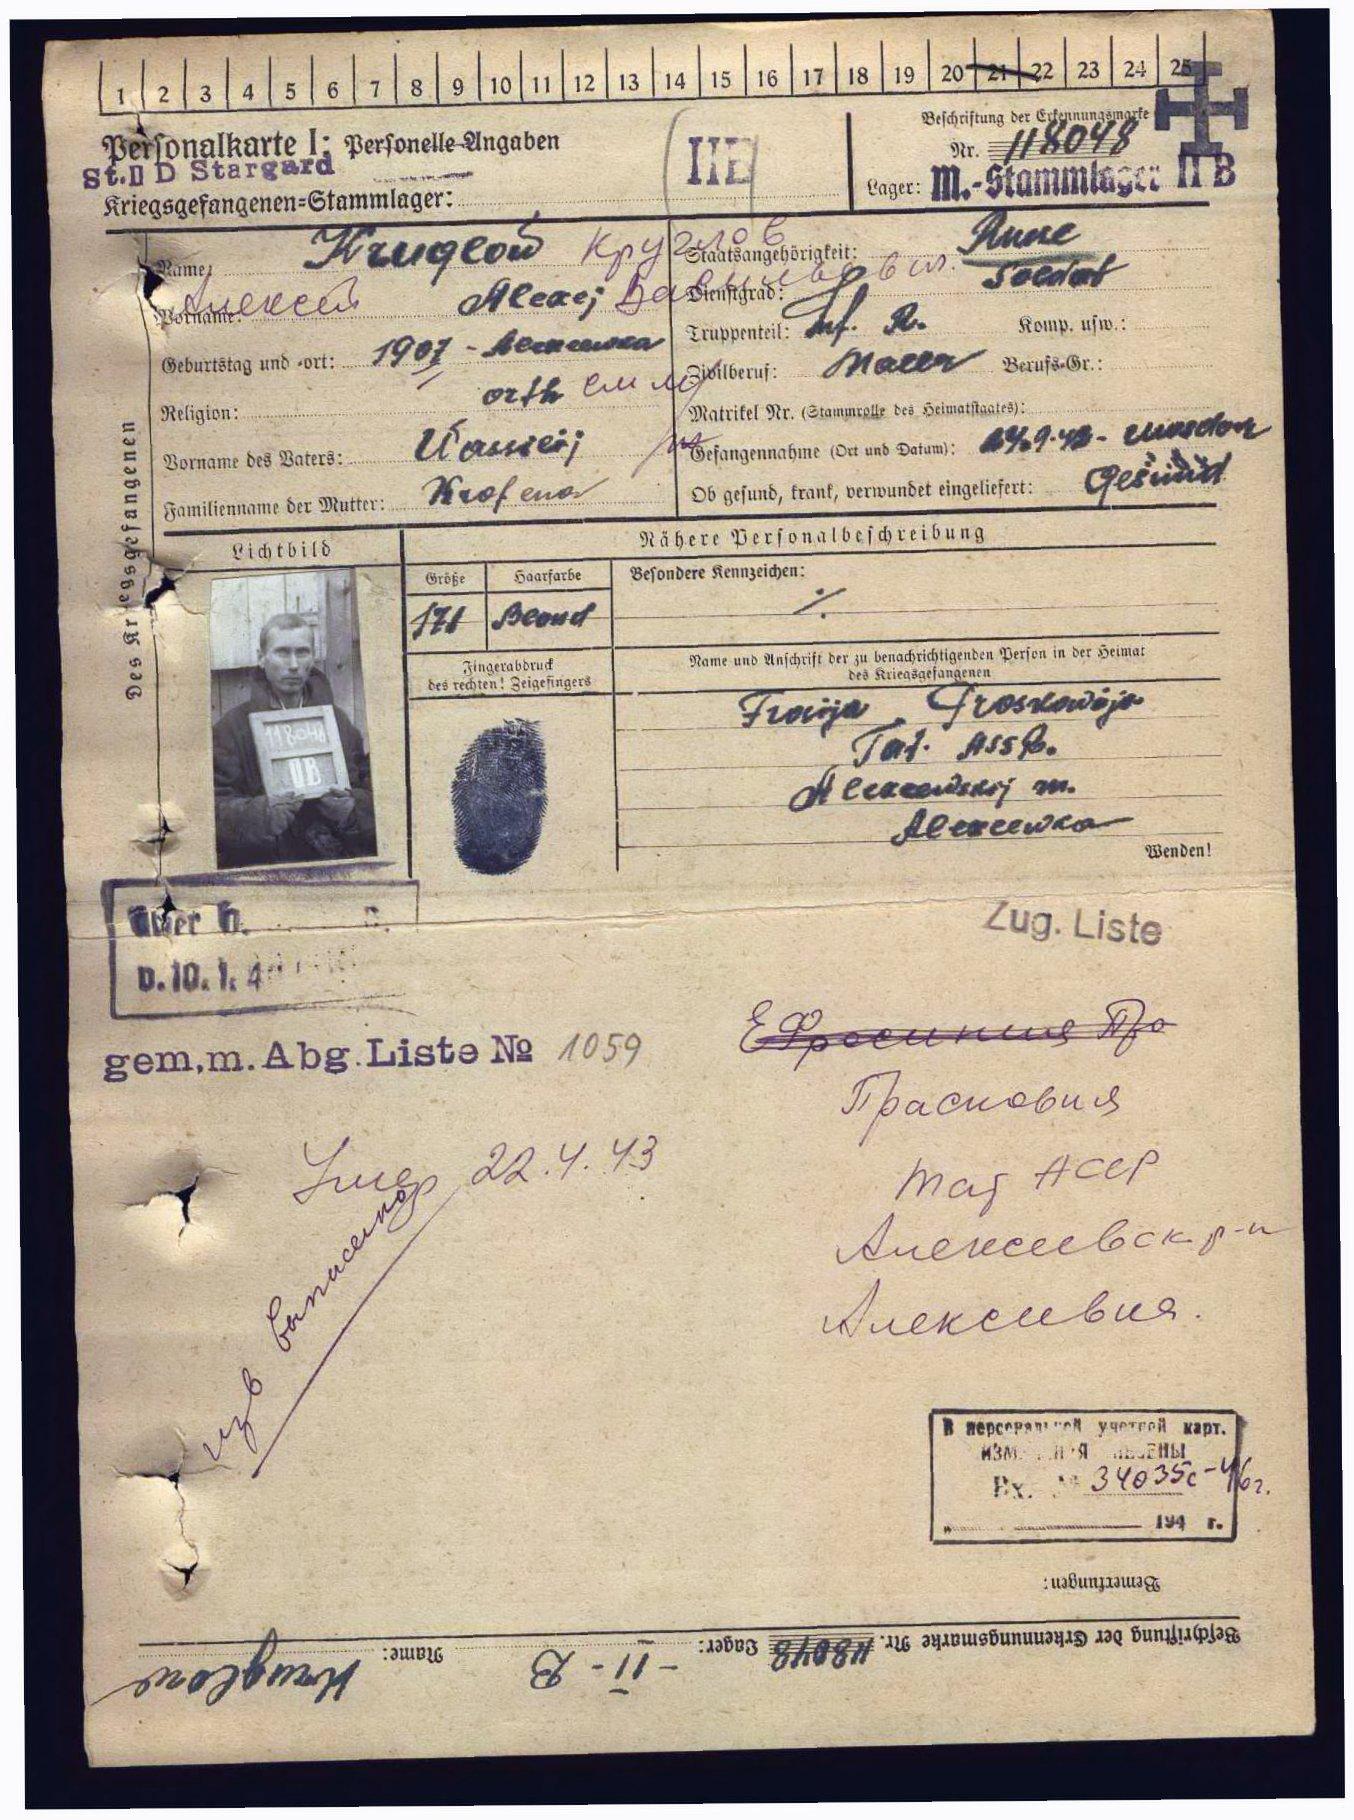 1 2 3 4 5 6 7 8 9 10 11 12 13 14 15 16 17 18 19 20 21 22 23 24 25
Personalkarte I: Personelle Angaben
St. II D Stargard
Kriegsgefangenen-Stammlager:
II B
Beschriftung der Erkennungsmarke
Nr. 118048
Lager: M.-Stammlager II B
Des Kriegsgefangenen
Name: Kruglow Круглов
Vorname: Алексей Alexej Васильевич
Geburtstag und -ort: 1907 - Alexeewka
Religion: orth
Vorname des Vaters: Wassilij
Familienname der Mutter:
Staatsangehörigkeit: Russe
Dienstgrad: Soldat
Truppenteil: Inf. R. Komp. usw.:
Zivilberuf: Berufs-Gr.:
Matrikel Nr. (Stammrolle des Heimatstaates):
Gefangennahme (Ort und Datum):
Ob gesund, krank, verwundet eingeliefert: Gesund
Lichtbild
118048
II B
Nähere Personalbeschreibung
Größe Haarfarbe Besondere Kennzeichen:
171 Blond ./.
Fingerabdruck
des rechten! Zeigefingers
Name und Anschrift der zu benachrichtigenden Person in der Heimat
des Kriegsgefangenen
Proskowija
Tat. ASSR.
Alexeewskij
Alexeewka
Wenden!
über
D. 10. 1. 4
Zug. Liste
gem. m. Abg. Liste № 1059
Ефросиния Пра
Прасковия
Тат АССР
Алексеевск р-н
Алексеевка.
Умер 22.4.43
изв выписано
В персональной учетной карт.
ИЗМЕНЕНИЯ ВНЕСЕНЫ
Вх. № 34035с-46г.
" 194 г.
Bemerkungen:
Beschriftung der Erkennungsmarke Nr. 118048 Lager: II-B Name: Kruglow